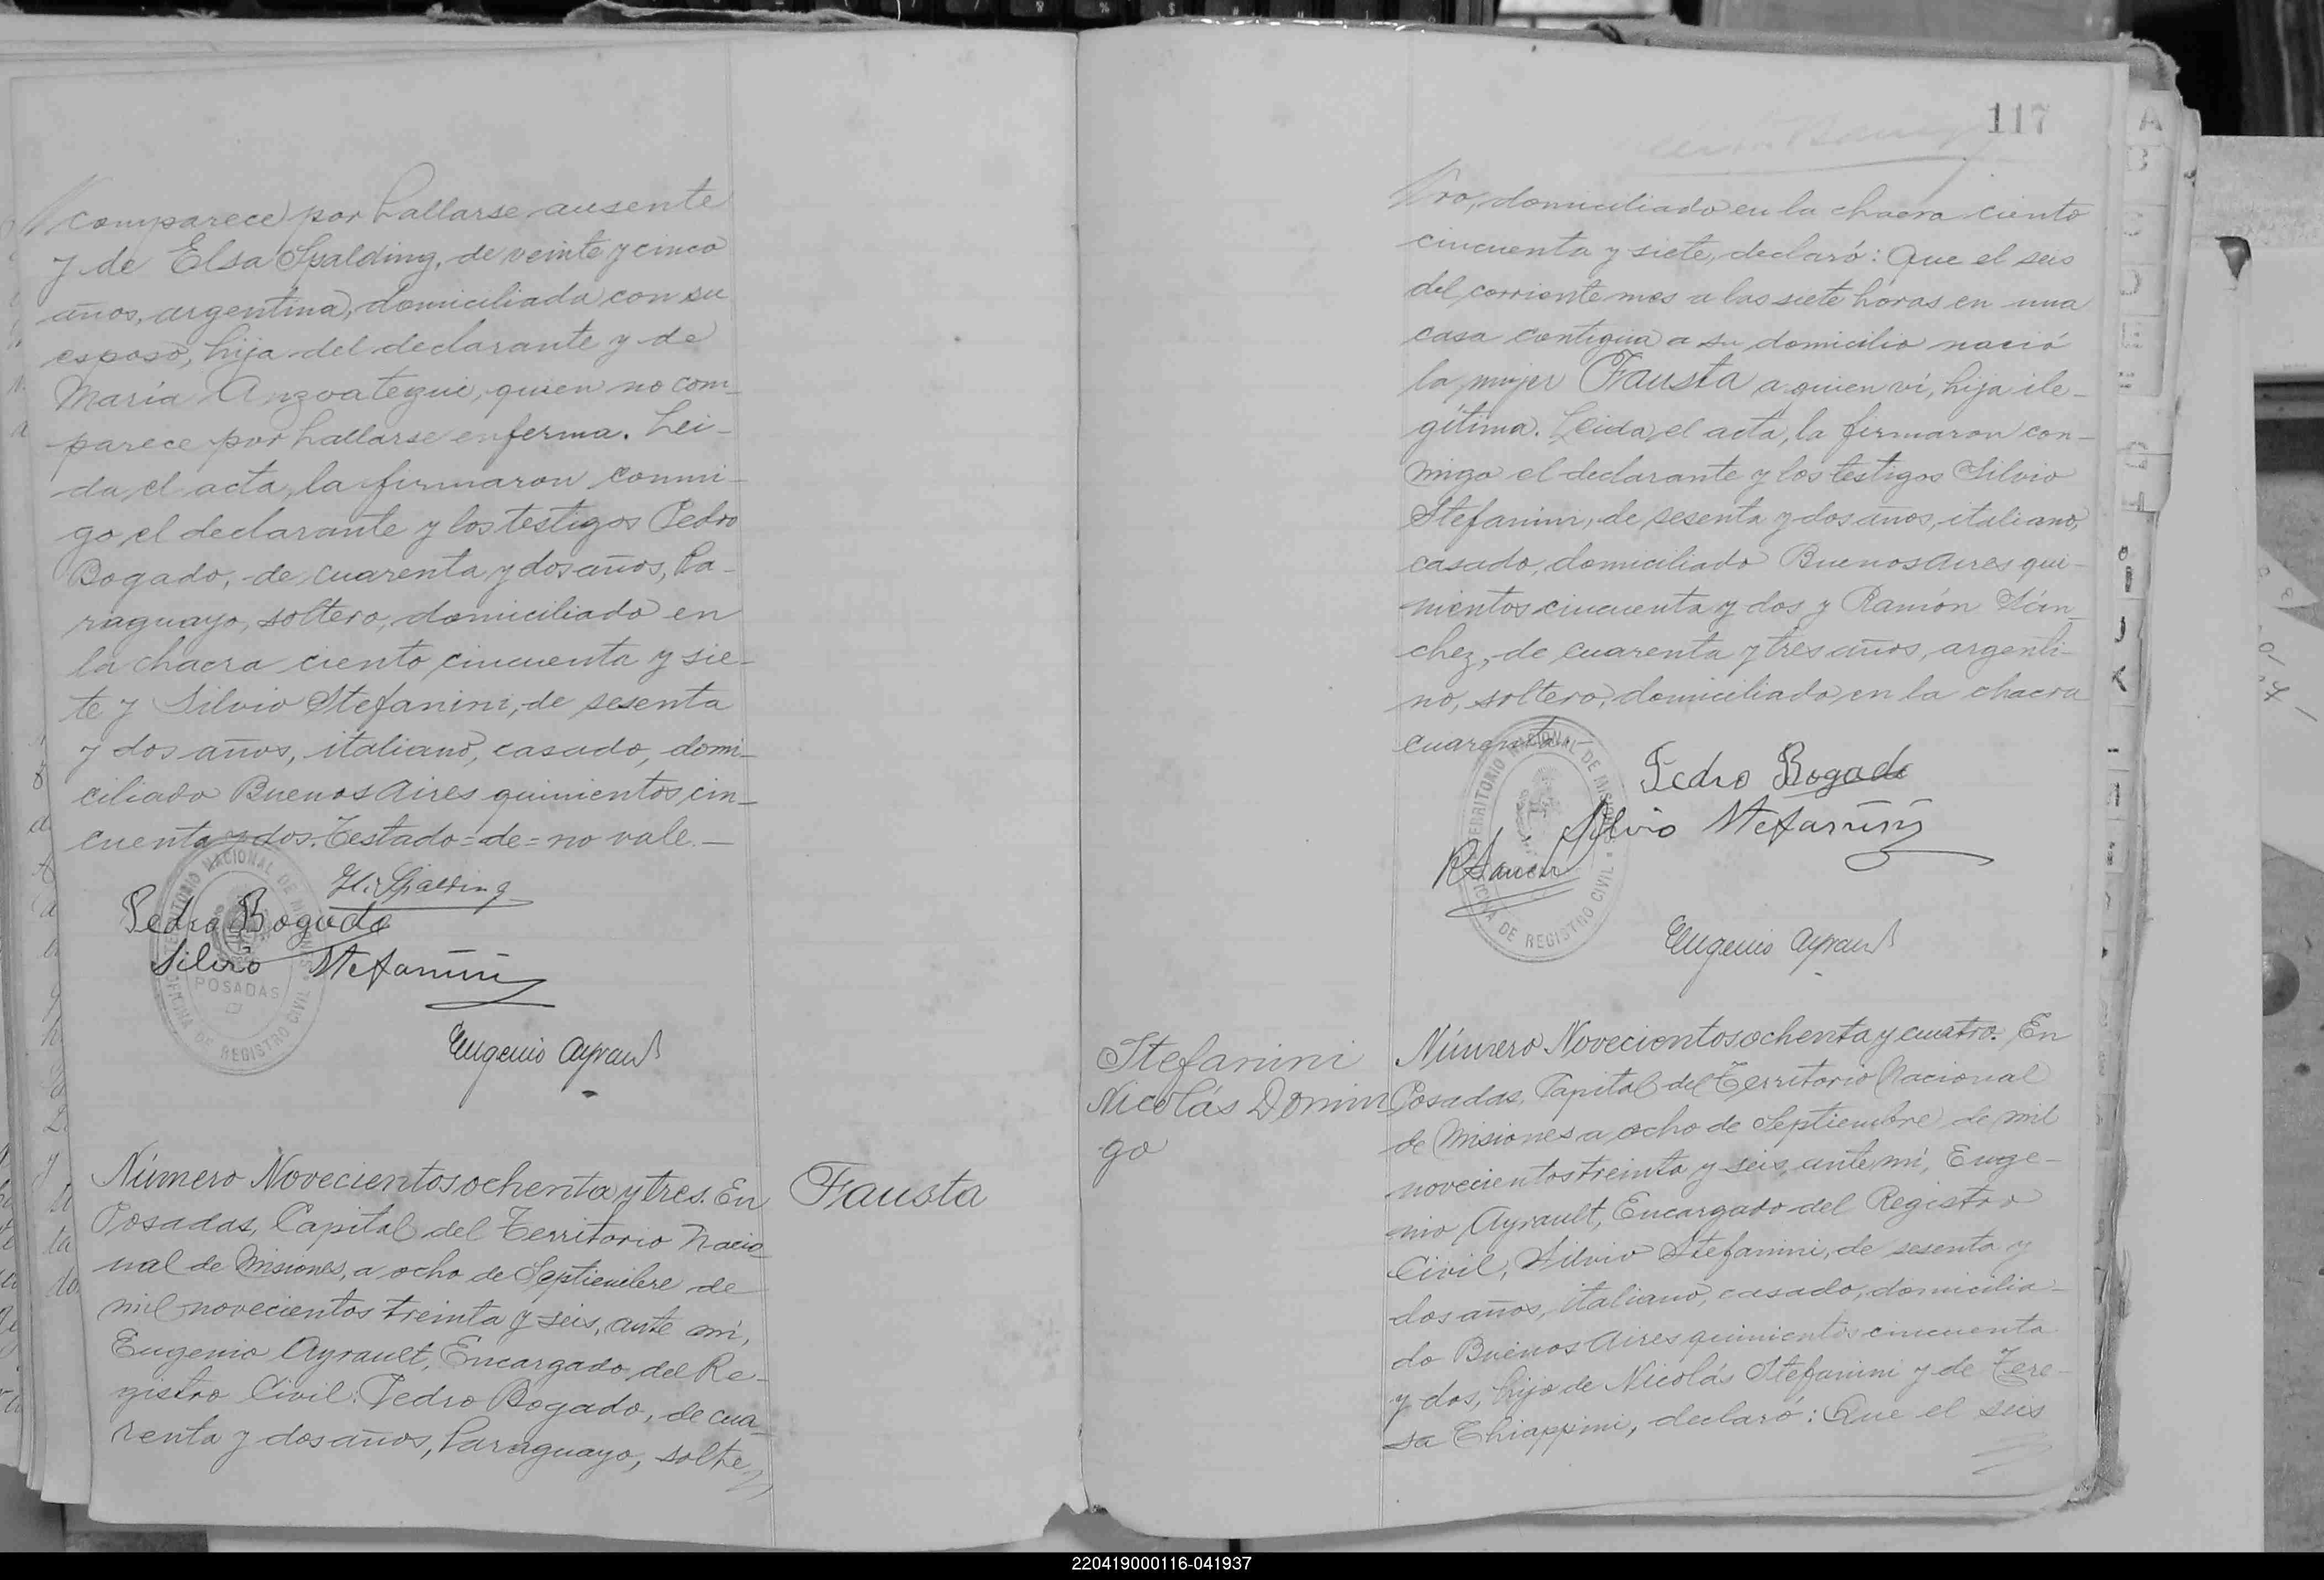 comparece por hallarse ausente
y de Elsa Spalding, de veinte y cinco
años, argentina, domiciliada con su
esposo, hija del declarante y de
María Anzoategui, quien no com-
parece por hallarse enferma. Lei-
da el acta, la firmaron conmi-
go el declarante y los testigos Pedro
Bogado, de cuarenta y dos años, Pa-
raguayo, soltero, domiciliado en
la chacra ciento cincuenta y sie-
te y Silvio Stefanini, de sesenta
y dos años, italiano, casado, domi-
ciliado Buenos Aires quinientos cin-
cuenta y dos. Testado=de=no vale.—
H. Spalding
Pedro Bogado
Silvio Stefanini
TERRITORIO NACIONAL DE MISIONES
POSADAS
OFICINA DE REGISTRO CIVIL
Eugenio Ayrault
Fausta
Número Novecientos ochenta y tres. En
Posadas, Capital del Territorio Nacio-
nal de Misiones, a ocho de Septiembre de
mil novecientos treinta y seis, ante mí,
Eugenio Ayrault, Encargado del Re-
gistro Civil: Pedro Bogado, de cua-
renta y dos años, Paraguayo, solte
117
ro, domiciliado en la chacra ciento
cincuenta y siete, declaró: Que el seis
del corriente mes a las siete horas en una
casa contigua a su domicilio nació
la mujer Fausta a quien vi, hija ile-
gítima. Leida el acta, la firmaron con-
migo el declarante y los testigos Silvio
Stefanini, de sesenta y dos años, italiano,
casado, domiciliado Buenos Aires qui-
nientos cincuenta y dos y Ramón Sán-
chez, de cuarenta y tres años, argenti-
no, soltero, domiciliado en la chacra
cuarenta.—
Pedro Bogado
Silvio Stefanini
TERRITORIO NACIONAL DE MISIONES
OFICINA DE REGISTRO CIVIL
Eugenio Ayrault
Stefanini
Nicolás Domin
go
Número Novecientos ochenta y cuatro. En
Posadas, Capital del Territorio Nacional
de Misiones a ocho de Septiembre de mil
novecientos treinta y seis, ante mí, Euge-
nio Ayrault, Encargado del Registro
Civil, Silvio Stefanini, de sesenta y
dos años, italiano, casado, domicilia-
do Buenos Aires quinientos cincuenta
y dos, hijo de Nicolás Stefanini y de Tere-
sa Chiappini, declaró: Que el seis
220419000116-041937